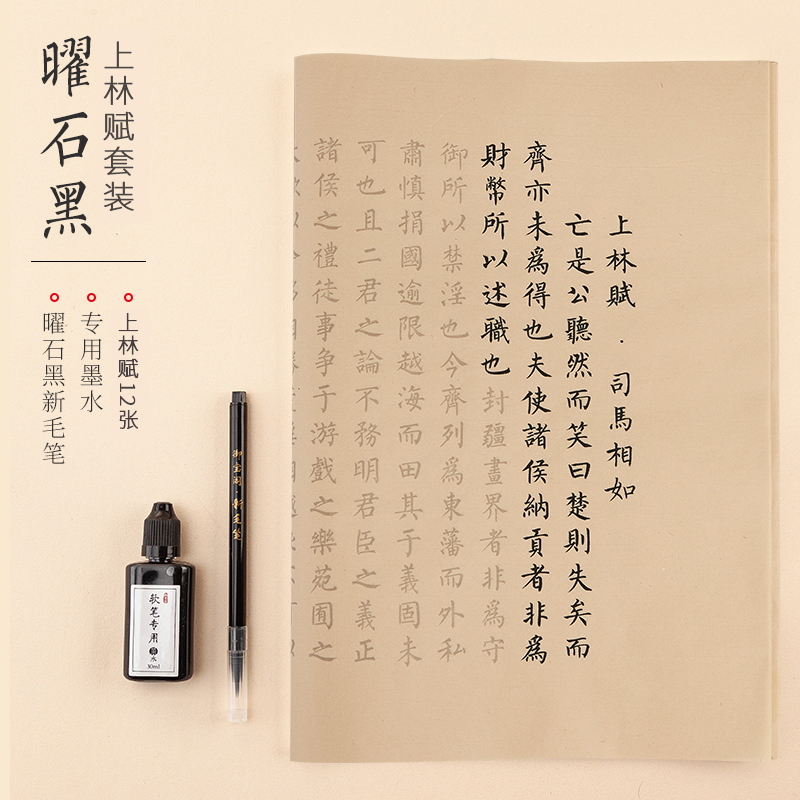 上林赋套装
曜石黑
上林赋12张
专用墨水
曜石黑新毛笔
上林賦·司馬相如
亡是公聽然而笑曰楚則失矣而
齊亦未爲得也夫使諸侯納貢者非爲
財幣所以述職也封疆畫界者非爲守
御所以禁淫也今齊列爲東藩而外私
肅慎捐國逾限越海而田其于義固未
可也且二君之論不務明君臣之義正
諸侯之禮徒事争于游戲之樂苑囿之
御宝阁·新毛笔
软笔专用
墨水
30ml